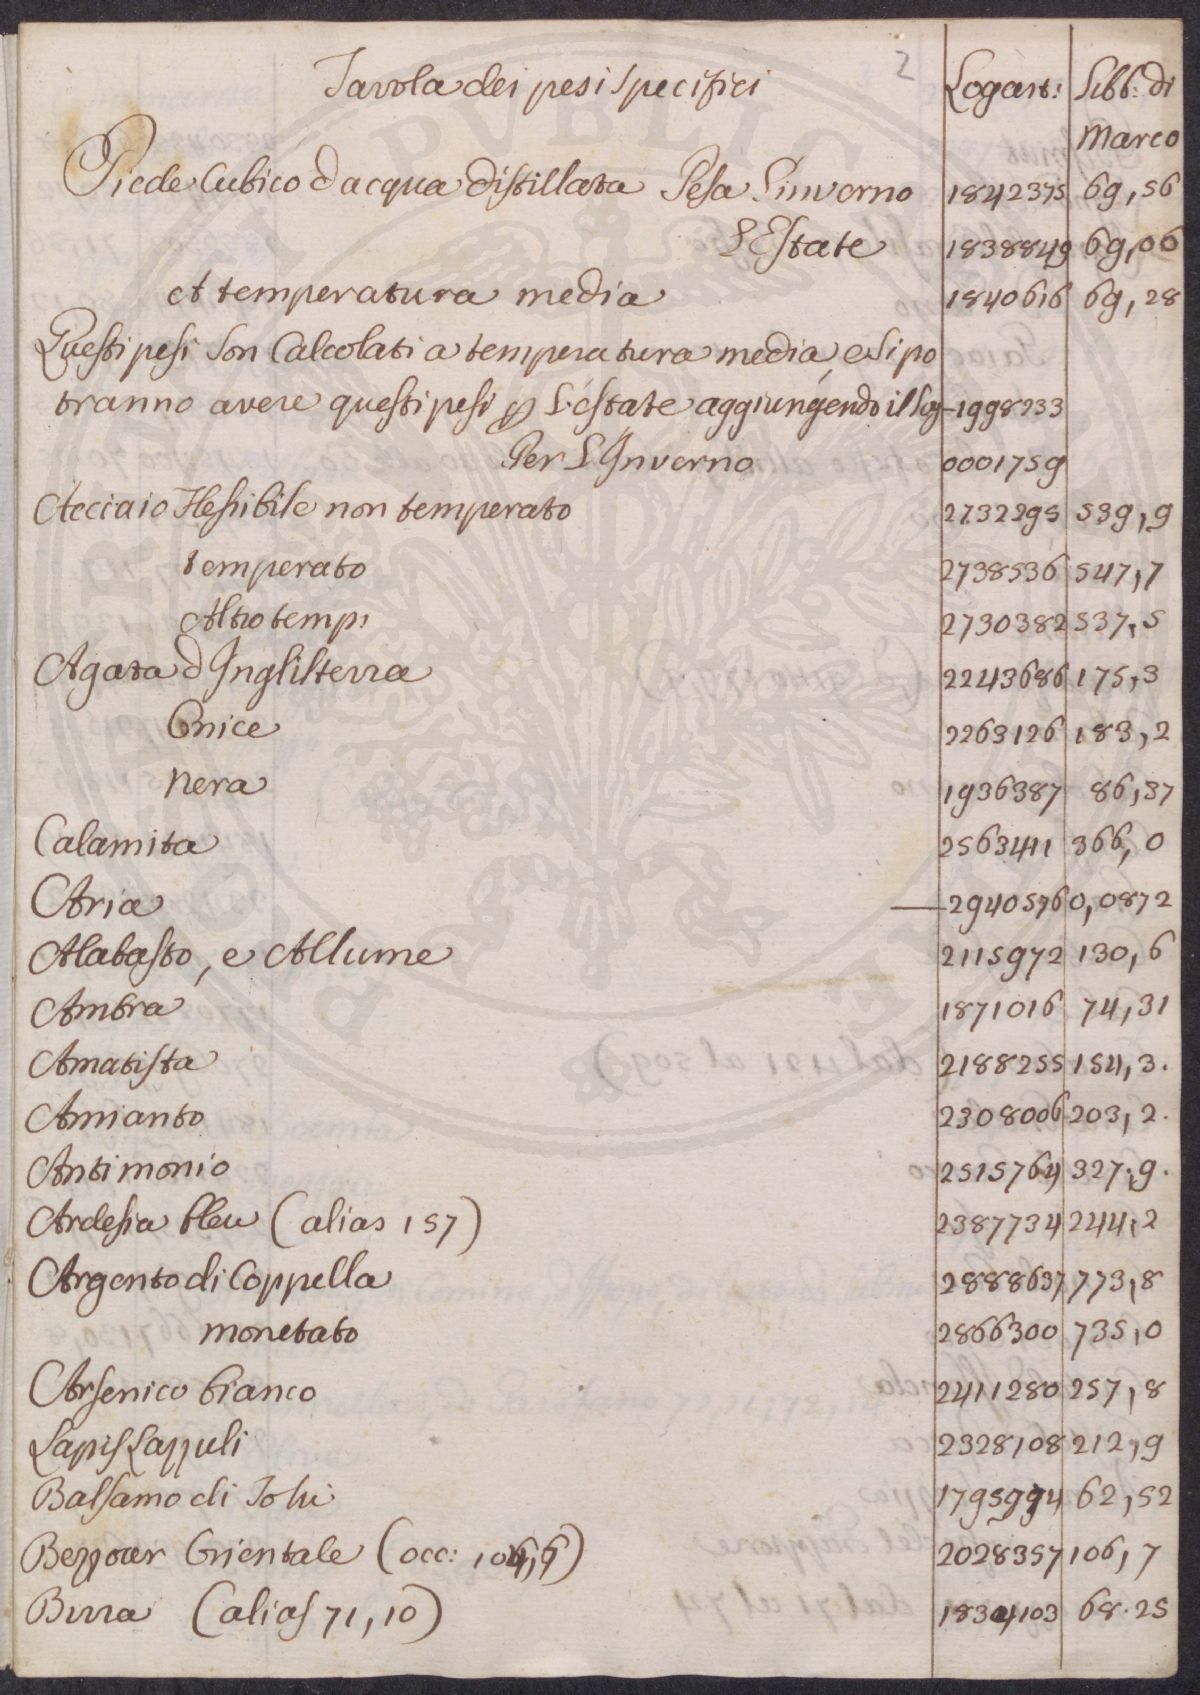 2
Tavola dei pesi specifici Logart: Libb: di
Marco
Piede Cubico d acqua distillata Pesa L'inverno 1842375 69,56
L'Estate 1838849 69,06
A temperatura media 1840616 69,28
Questi pesi son Calcolati a temperatura media, e si po
tranno avere questi pesi p L'éstate aggiungéndo il Log -1998233
Per L'Inverno 0001759
Acciaio Flessibile non temperato 2732295 539,9
temperato 2738536 547,7
Altro temp: 2730382 537,5
Agata d'Inghilterra 2243686 175,3
Onice 2263126 183,2
Nera 1936387 86,37
Calamita 2563411 366,0
Aria —2940576 0,0872
Alabasto, e Allume 2115972 130,6
Ambra 1871016 74,31
Amatista 2188255 154,3.
Amianto 2308006 203,2.
Antimonio 2515764 327,9.
Ardesia bleu (alias 157) 2387734 244,2
Argento di Coppella 2888637 773,8
monetato 2866300 735,0
Arsenico bianco 2411280 257,8
Lapis Lazzuli 2328108 212,9
Balsamo di Tolù 1795994 62,52
Bezzoar Orientale (occ: 2028357 106,7
Birra (alias 71,10) 1834103 68.25